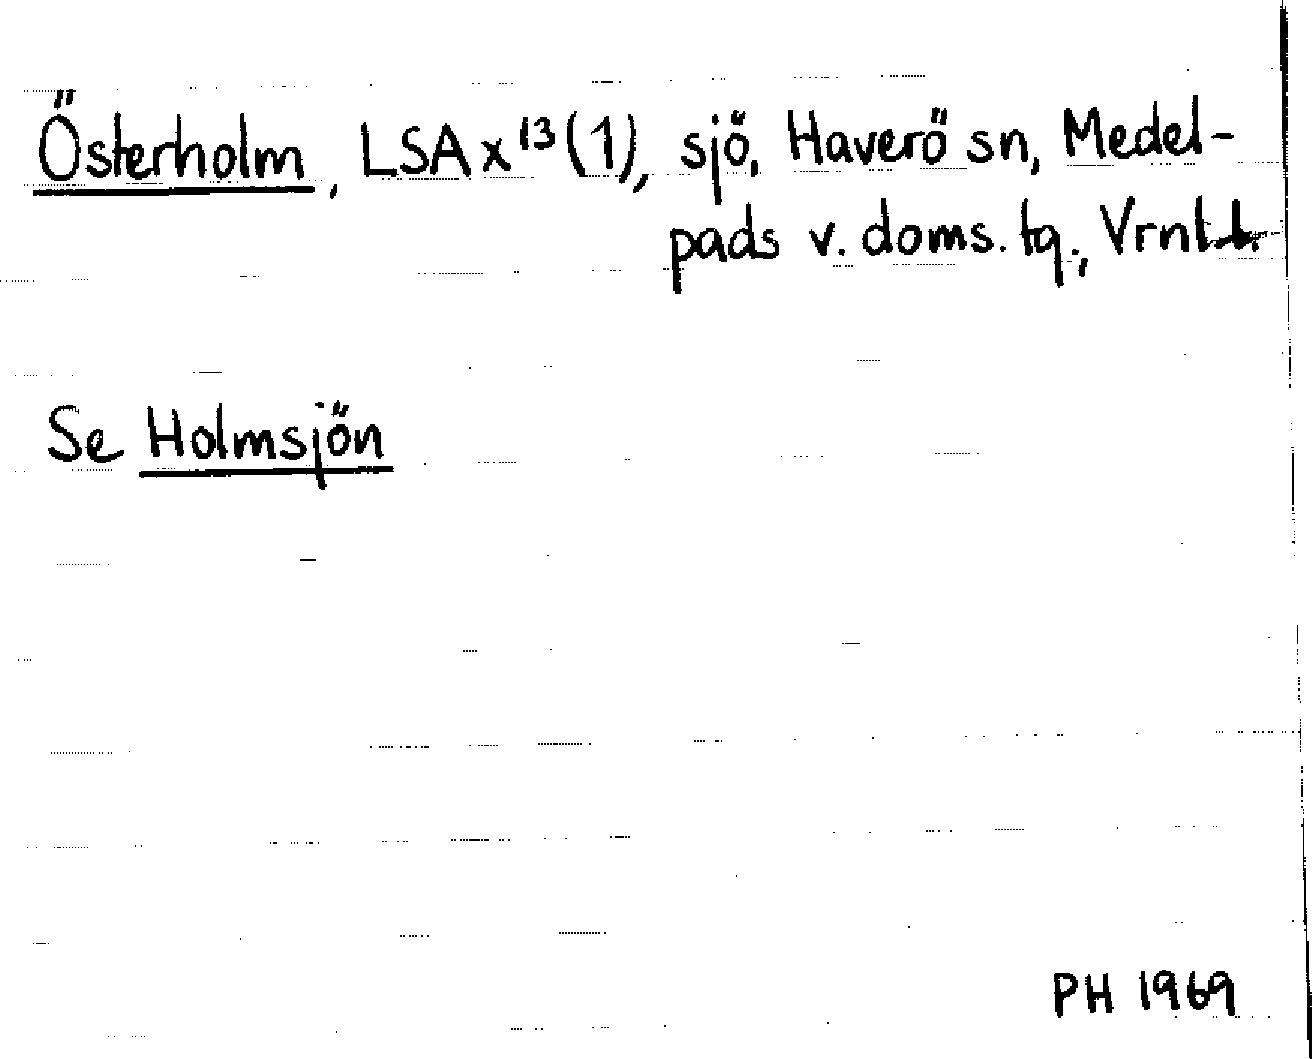 Österholm, LSA x¹³(1), sjö, Haverö sn, Medel-
pads v. doms. tg., Vrnl.
Se Holmsjön
PH 1969